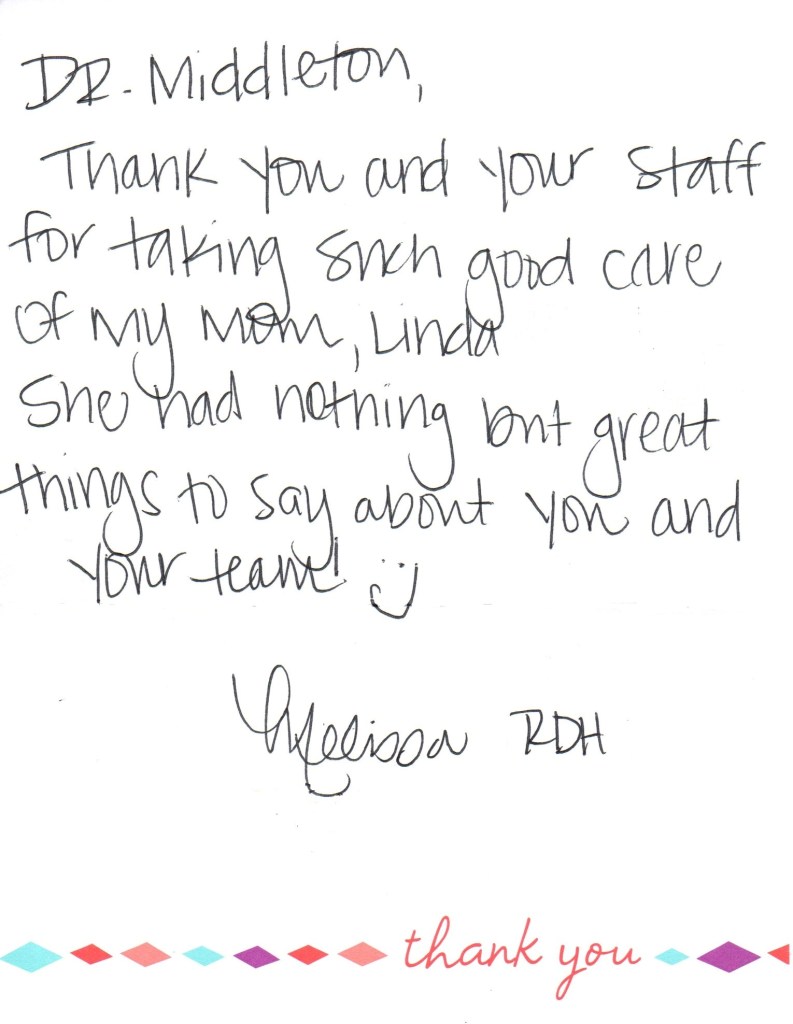 DR. Middleton,
Thank you and your staff
for taking such good care
of my mom, Linda
She had nothing but great
things to say about you and
your team!
Melissa RDH
thank you